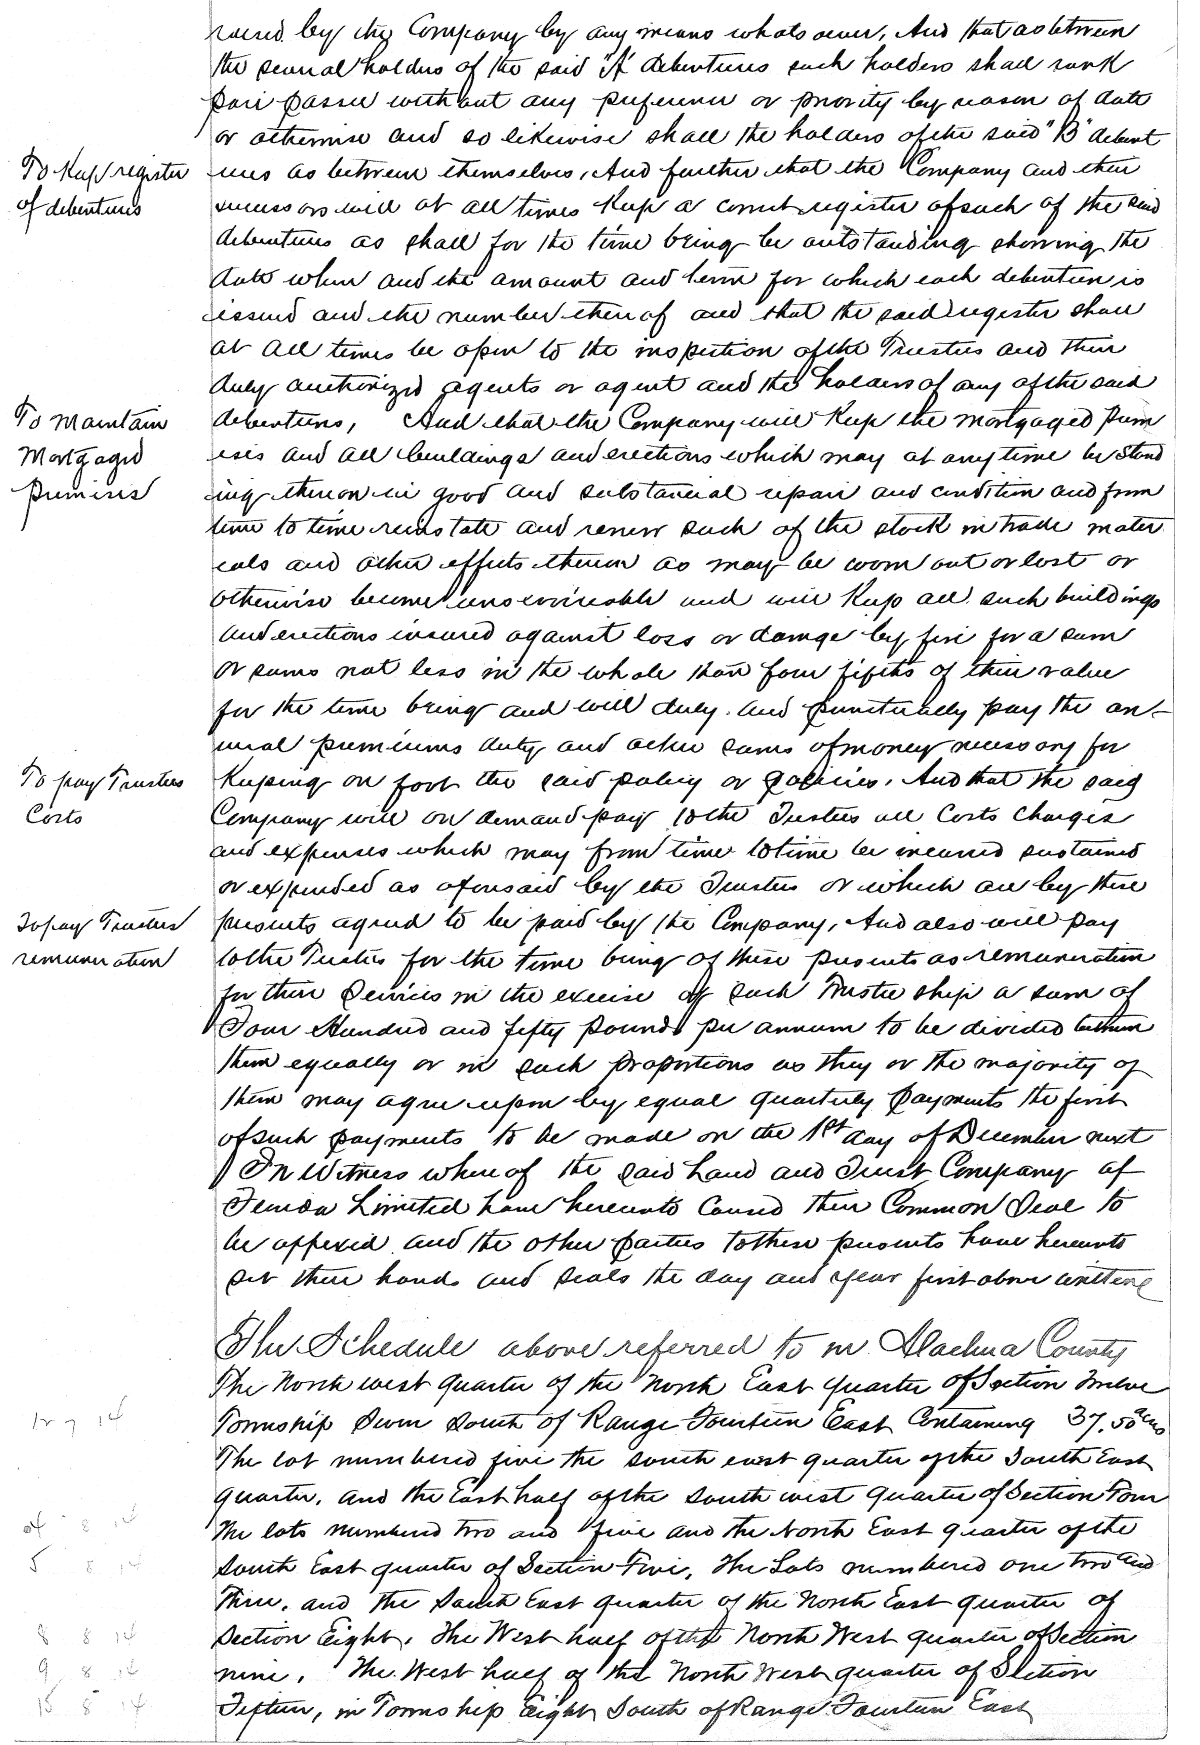 by the Company by any means whatsoever, And that as between
the several holders of the said "A" debentures such holders shall rank
pari passu without any preference or priority by reason of date
or otherwise and so likewise shall the holders of the said "B" debent
To Keep register
ures as between themselves, And further that the Company and their
of debentures
successors will at all times Keep a correct register of such of the said
debentures as shall for the time being be outstanding showing the
date when and the amount and term for which each debenture is
issued and the number thereof and that the said register shall
at all times be open to the inspection of the Trustees and their
duly authorized agents or agent and the holders of any of the said
To Maintain
debentures, And that the Company will Keep the mortgaged prem
Mortgaged
ises and all buildings and erections which may at any time be stand
premises
ing thereon in good and substancial repair and condition and from
time to time reinstate and renew such of the stock in trade mater
eals and other effects thereon as may be worn out or lost or
otherwise become unserviceable and will Keep all such buildings
and erections insured against loss or damge by fire for a sum
or sums not less in the whole than four fifths of their value
for the time being and will duly and punctually pay the an-
nual premiums duty and other sums of money necessary for
To pay Trustees
Keeping on foot the said policy or policies, And that the said
Costs
Company will on demand pay to the Trustees all Costs Charges
and expenses which may from time to time be incurred sustained
or expended as aforesaid by the Trustees or which are by these
To pay Trustees
presents agreed to be paid by the Company, And also will pay
remuneration
to the Trustees for the time being of these presents as remuneration
for their Services in the exercise of such Trusteeship a sum of
Four Hundred and fifty pounds per annum to be divided between
them equally or in such proportions as they or the majority of
them may agree upon by equal quarterly payments the first
of such payments to be made on the 1st day of December next
In Witness whereof the said Land and Trust Company of
Florida Limited have hereunto Caused their Common Seal to
be affixed and the other parties to these presents have hereunto
set their hands and seals the day and year first above written
The Schedule above referred to in Alachua County
The North west quarter of the North East quarter of Section Twelve
12 7 14
Township Seven South of Range Fourteen East Containing 37.50 acres
The lot numbered five the south east quarter of the South East
quarter, and the East half of the South west quarter of Section Four
4 8 14
The lots numbered two and five and the North East quarter of the
5 8 14
South East quarter of Section Five, The Lots numbered one two and
Three, and the South East quarter of the North East quarter of
8 8 14
Section Eight, The West half of the North West quarter of Section
9 8 14
nine, The West half of the North West quarter of Section
15 8 14
Fifteen, in Township Eight South of Range Fourteen East